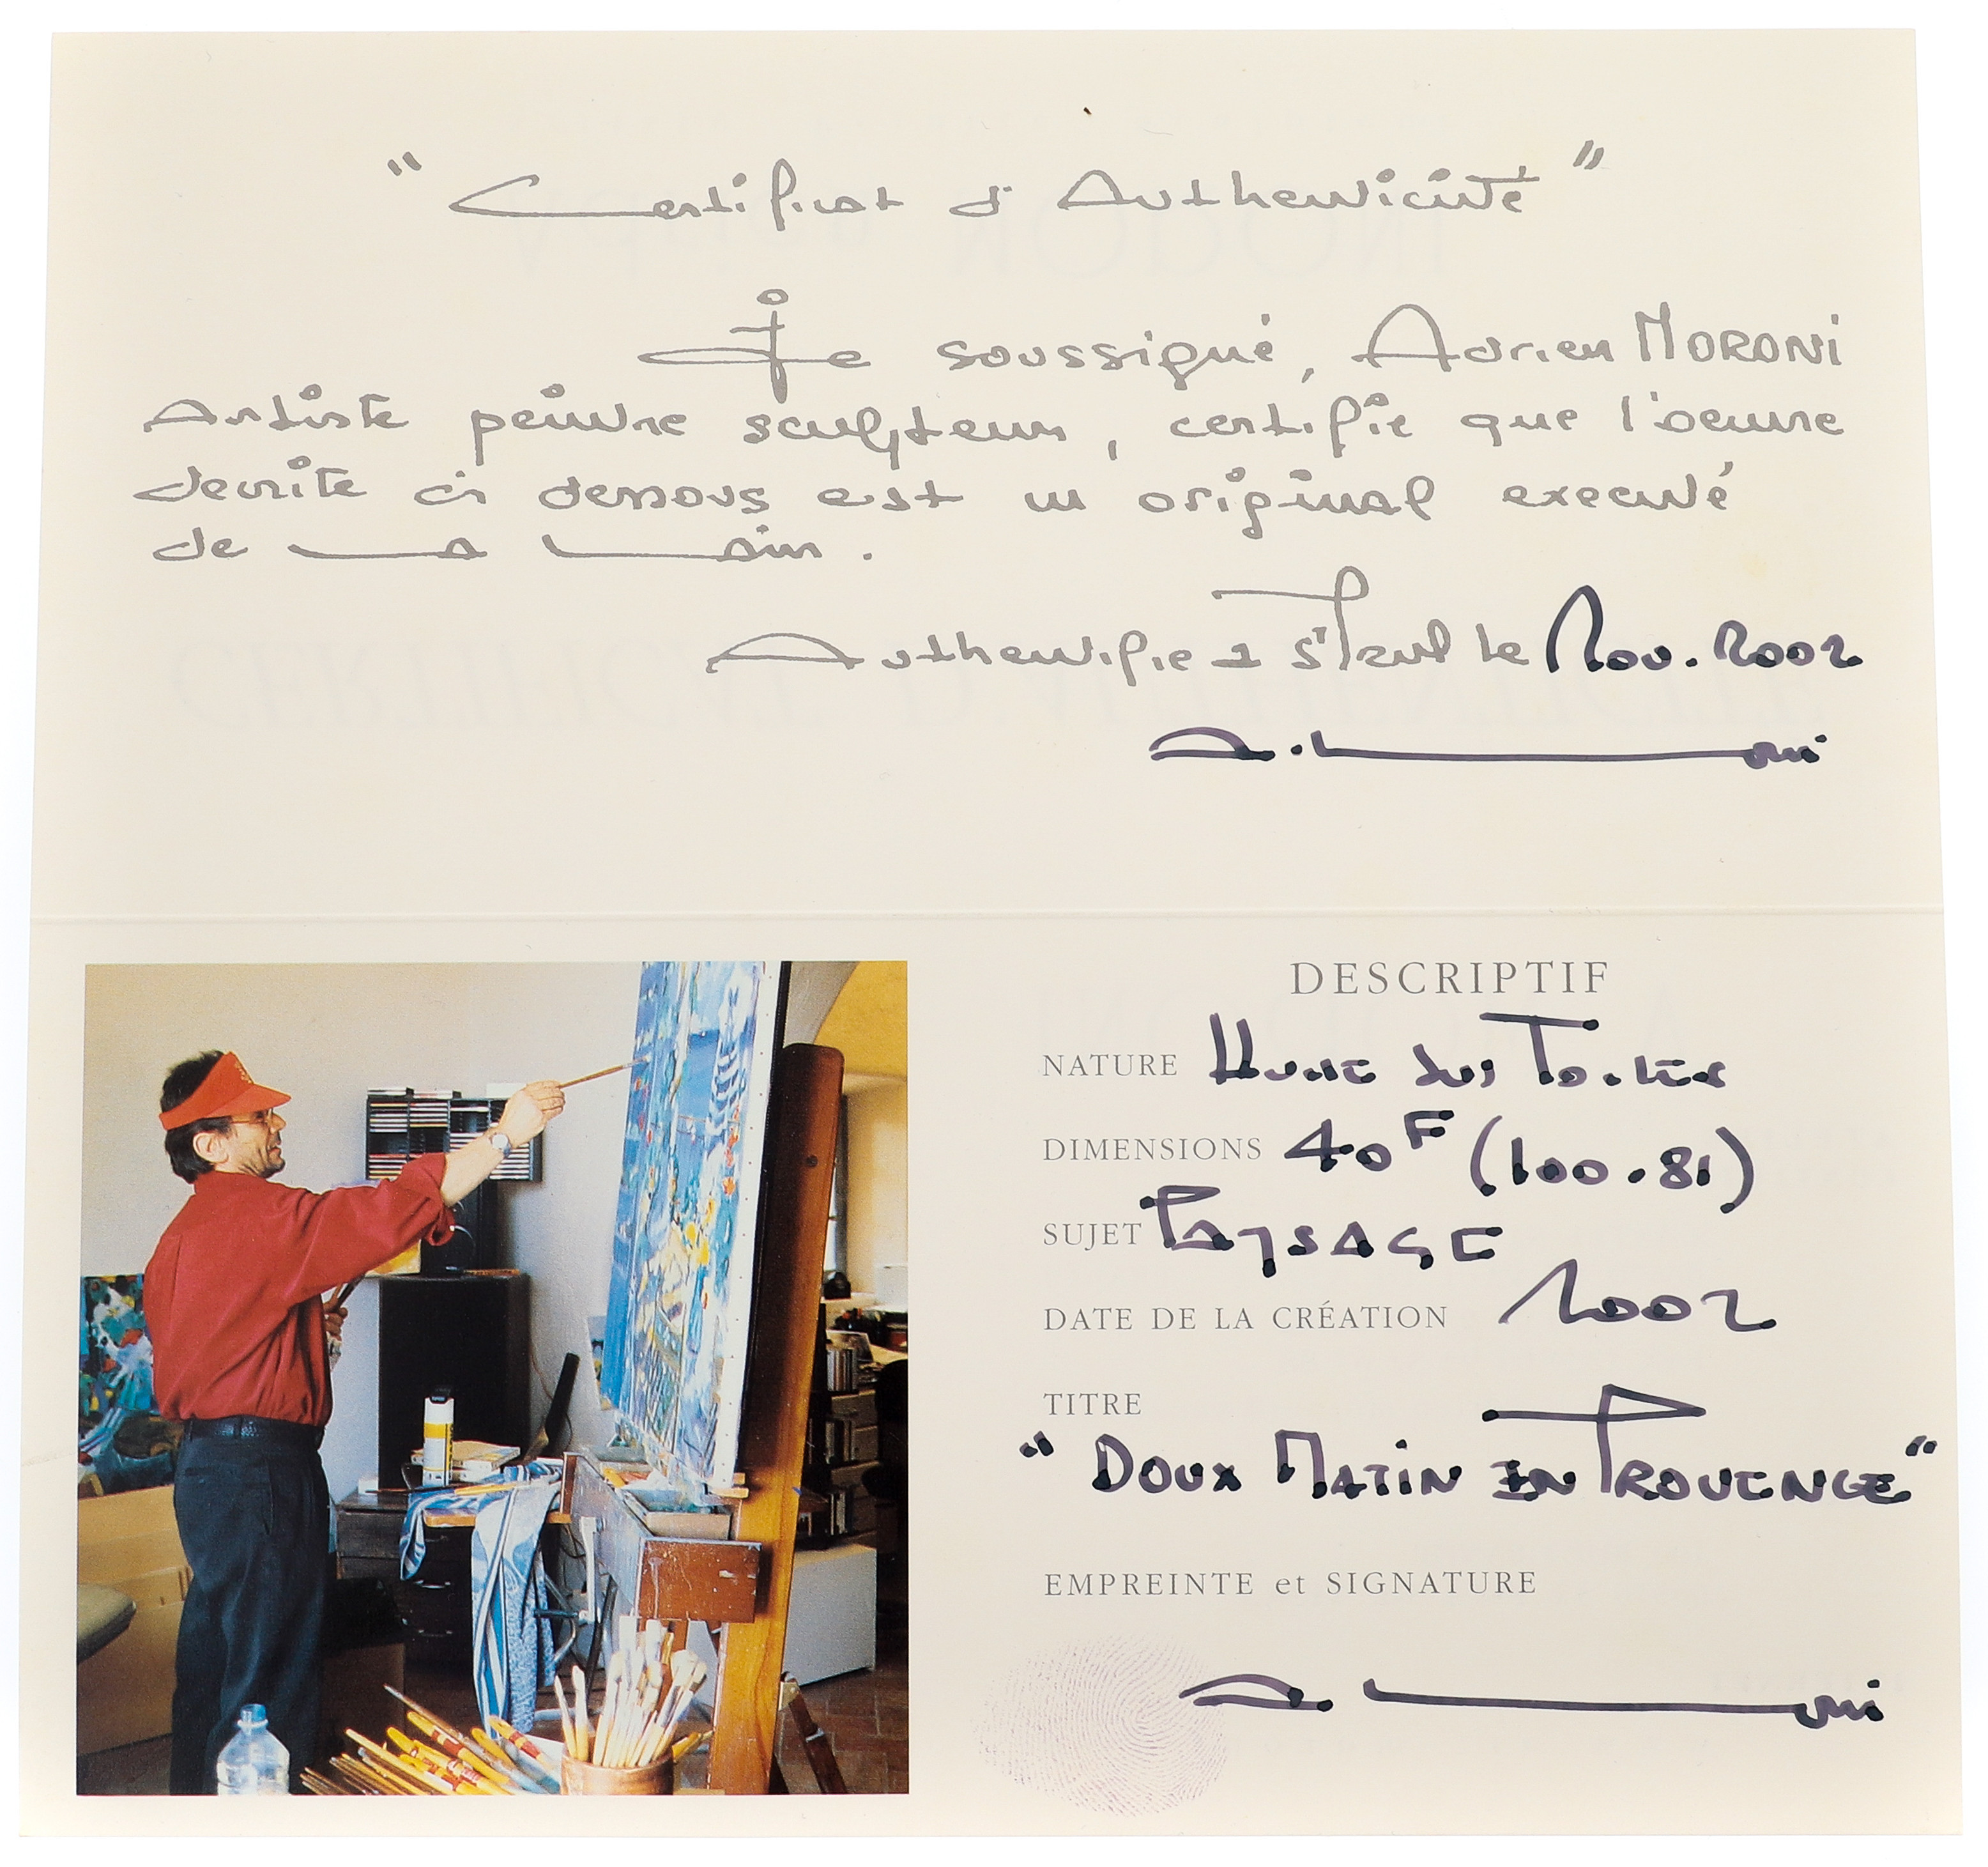 " Certificat d'Authenticité "
Je soussigné, Adrien MORONI
Artiste peintre sculpteur, certifie que l'oeuvre
décrite ci dessous est un original executé
de ma main.
Authentifié à St Paul le Nov. 2002
A. Moroni
DESCRIPTIF
NATURE Huile sur Toile
DIMENSIONS 40F (100.81)
SUJET PAYSAGE
DATE DE LA CRÉATION 2002
TITRE
" DOUX MATIN EN PROVENCE "
EMPREINTE et SIGNATURE
A. Moroni